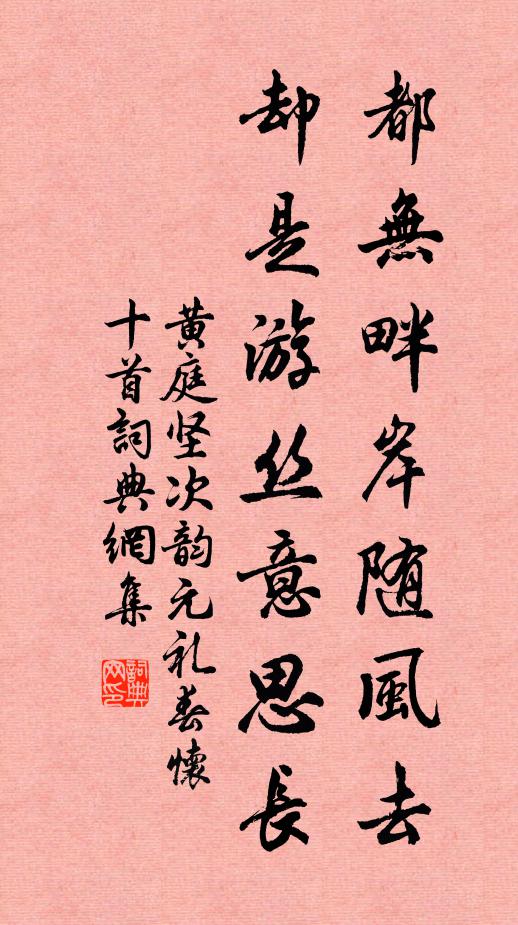 都無畔岸随風去
却是游丝意思長
黄庭坚次韵元礼春懷
十首詞典網集
詞典网印